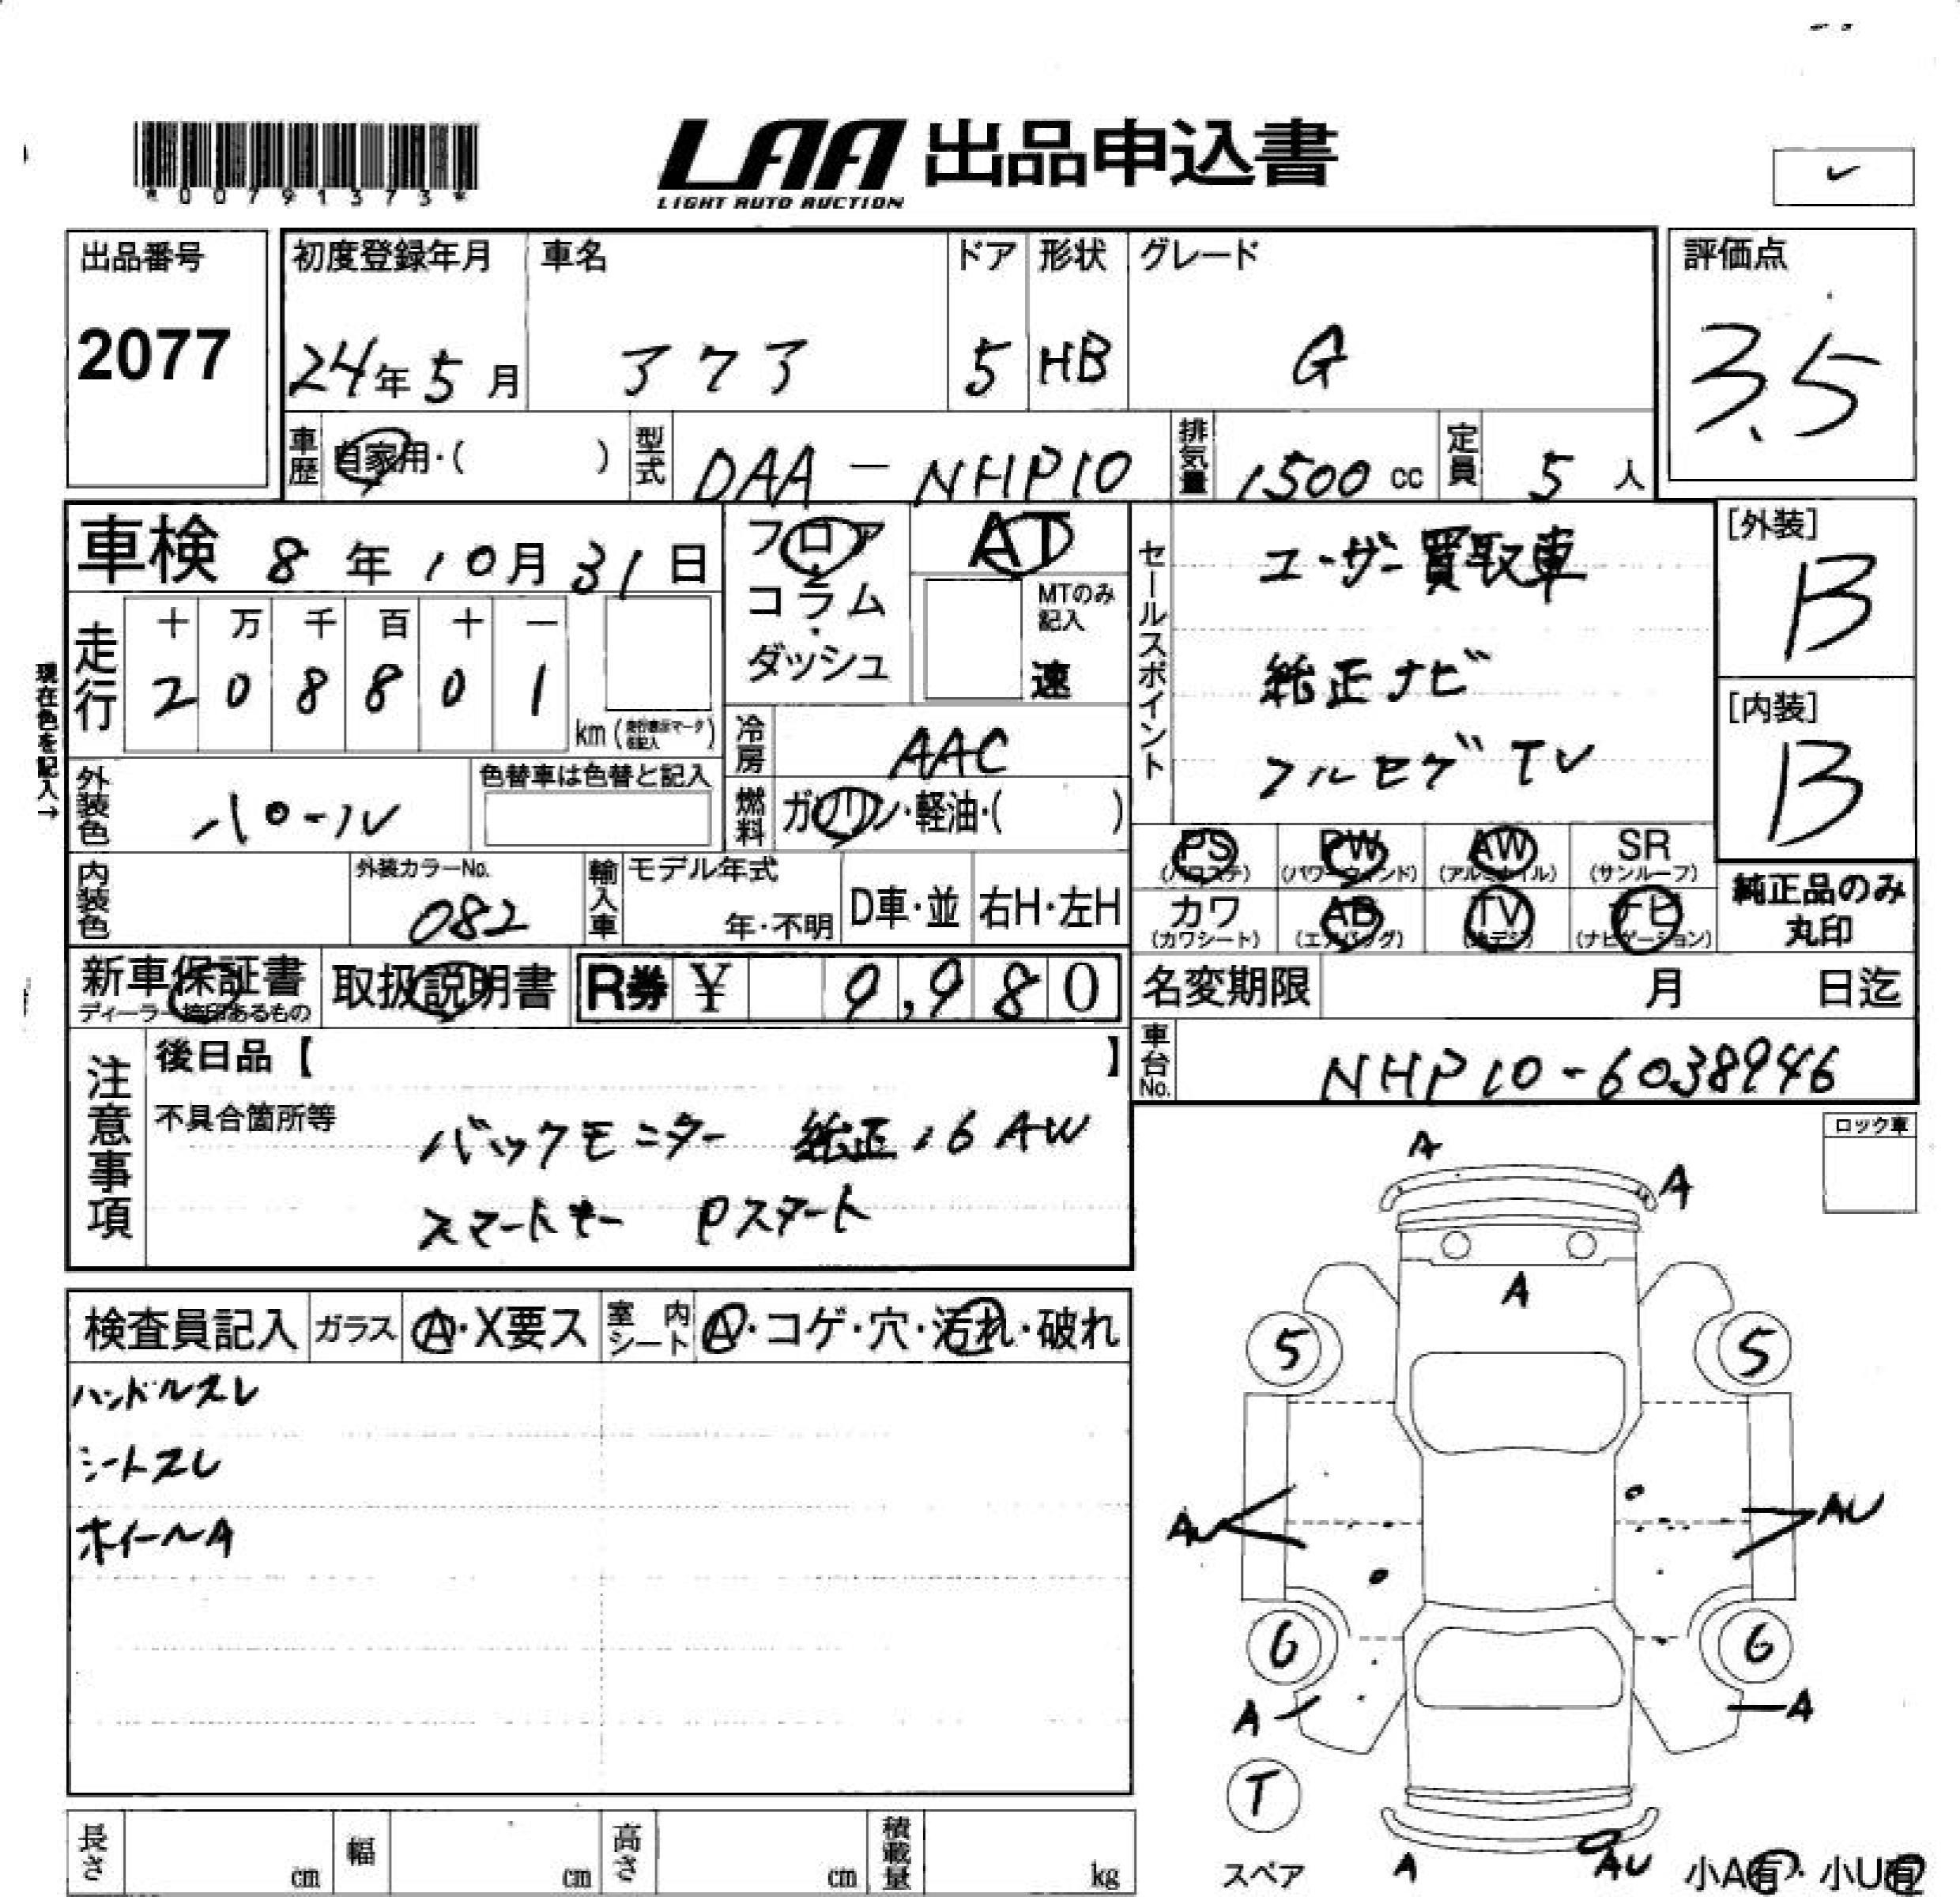 *00791373*
LAA 出品申込書
LIGHT AUTO AUCTION
出品番号
2077
初度登録年月
24年5月
車名
アクア
ドア
5
形状
HB
グレード
G
評価点
3.5
車歴 自家用・( )
型式 DAA-NHP10
排気量 1500 cc
定員 5 人
車検 8年10月31日
フロア
コラム
ダッシュ
AT
MTのみ
記入
速
セールスポイント
ユーザー買取車
純正ナビ
フルセグTV
[外装]
B
[内装]
B
現在色を記入→
走行
十 万 千 百 十 一
2 0 8 8 0 1
km
冷房 AAC
燃料 ガソリン・軽油・( )
外装色 パール
色替車は色替と記入
内装色
外装カラーNo.
082
輸入車
モデル年式
年・不明
D車・並
右H・左H
PS
(パワステ)
PW
(パワーウィンド)
AW
(アルミホイル)
SR
(サンルーフ)
カワ
(カワシート)
AB
(エアバッグ)
TV
(地デジ)
ナビ
(ナビゲーション)
純正品のみ
丸印
新車保証書
ディーラー捺印あるもの
取扱説明書
R券 ¥ 9,980
名変期限 月 日迄
車台No. NHP10-6038946
注意事項
後日品【 】
不具合箇所等
バックモニター 純正16AW
スマートキー Pスタート
ロック車
検査員記入
ガラス
A・X要ス
室内シート
A・コゲ・穴・汚れ・破れ
ハンドルスレ
シートスレ
ホイールA
A
A
A
5
5
AU
AU
6
6
A
A
T
スペア
A
AU
小A有・小U有
長さ cm
幅 cm
高さ cm
積載量 kg